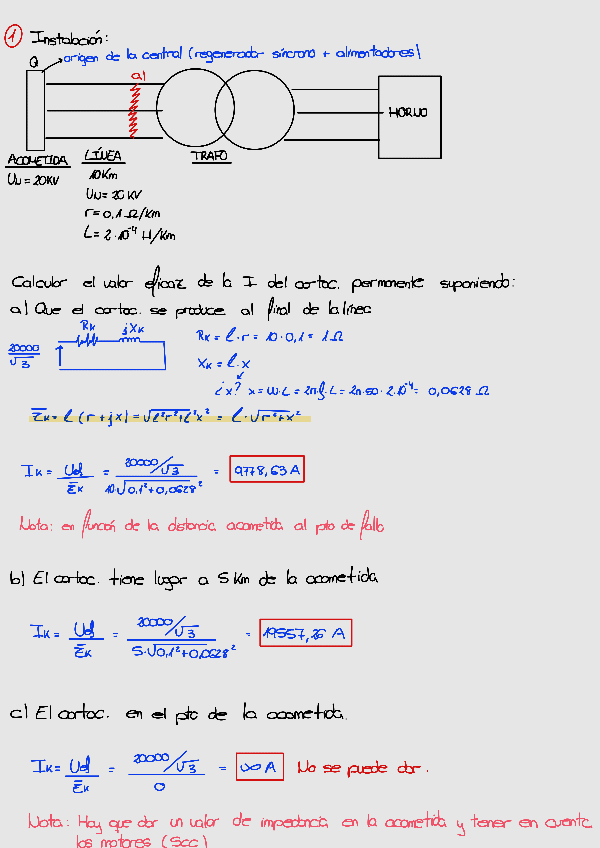 1 Instalación:
Q origen de la central (regenerador síncrono + alimentadores)
a)
HORNO
ACOMETIDA LÍNEA TRAFO
UN = 20KV 10Km
UN = 20 KV
r = 0,1 Ω/Km
L = 2·10⁻⁴ H/Km
Calcular el valor eficaz de la I del cortoc. permanente suponiendo:
a) Que el cortoc. se produce al final de la línea
RK jXK
20000/√3
RK = l·r = 10·0,1 = 1Ω
XK = l·x
¿x? x = ω·L = 2π·f·L = 2π·50·2·10⁻⁴ = 0,0628 Ω
Z̄K = l (r + jx) = √l²r² + l²x² = l·√r² + x²
IK = Uef / Z̄K = 20000/√3 / 10·√0,1² + 0,0628² = 9778,63 A
Nota: en función de la distancia acometida al pto de fallo
b) El cortoc. tiene lugar a 5 Km de la acometida
IK = Uef / Z̄K = 20000/√3 / 5·√0,1² + 0,0628² = 19557,26 A
c) El cortoc. en el pto de la acometida.
IK = Uef / Z̄K = 20000/√3 / 0 = ∞ A No se puede dar.
Nota: Hay que dar un valor de impedancia en la acometida y tener en cuenta
los motores (Scc)